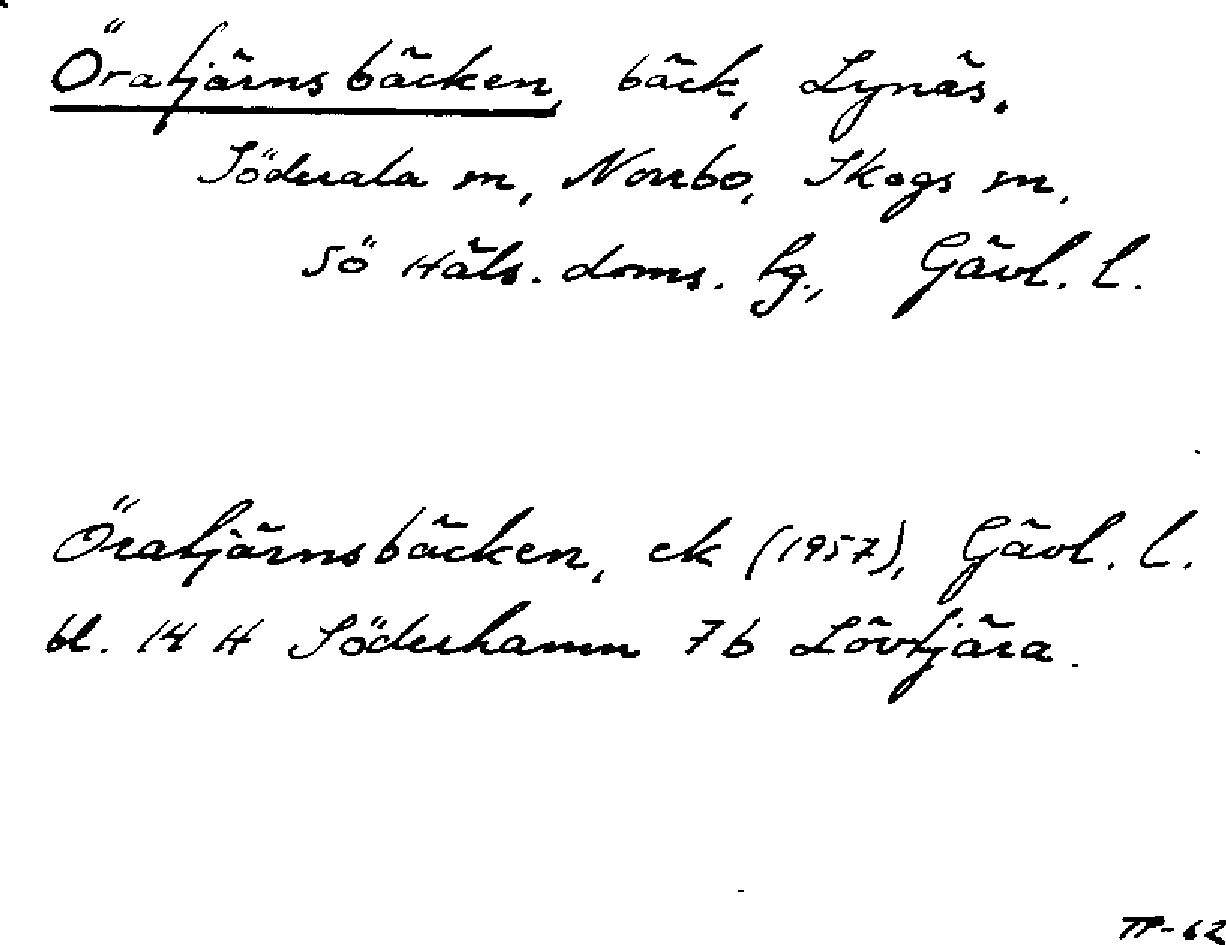 Öratjärnsbäcken, bäck, Lynäs,
Söderala sn, Norrbo, Skogs sn,
Sö Häls. doms. hg., Gävl. l.
Öratjärnsbäcken, ek (1957), Gävl. l.
bl. 14 H Söderhamn 7b Lövtjära.
TP-62